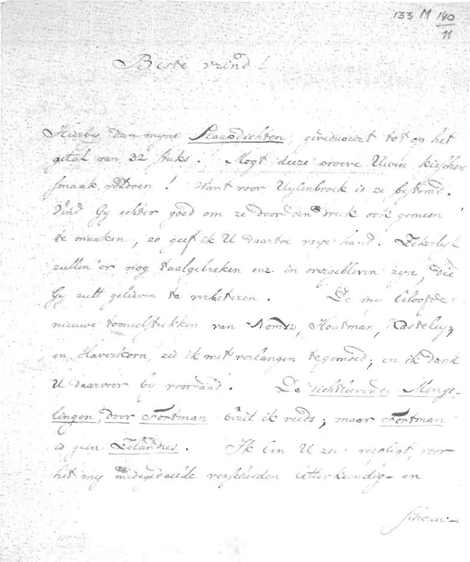 133 M 140
11
Beste vrind!
Hierbij dan myne Puntdichten, gereduceert tot op het
getal van 32 stuks. Mogt deeze proeve Uwen kieschen
smaak voldoen! Want voor Uylenbroek is ze bestemd.
Vind Gy echter goed om ze door den druk ook gemeen
te maaken, zo geef ik U daartoe vrye hand. Zekerlyk
zullen er nog taalgebreken enz. in overgebleven zyn, die
Gy zult gelieven te verbeteren. De my beloofde
nieuwe tooneelstukken van Nomsz, Houtman, Kasteleyn
en Haverkorn, zie ik met verlangen tegemoed; en ik dank
U daarvoor by voorraad. De Menge-
lingen, door Fontman bezit ik reeds; maar Fontman
is geen. Ik ben U zeer verpligt voor
het my medegedeelde verscheiden letterkundig- en
schouw-